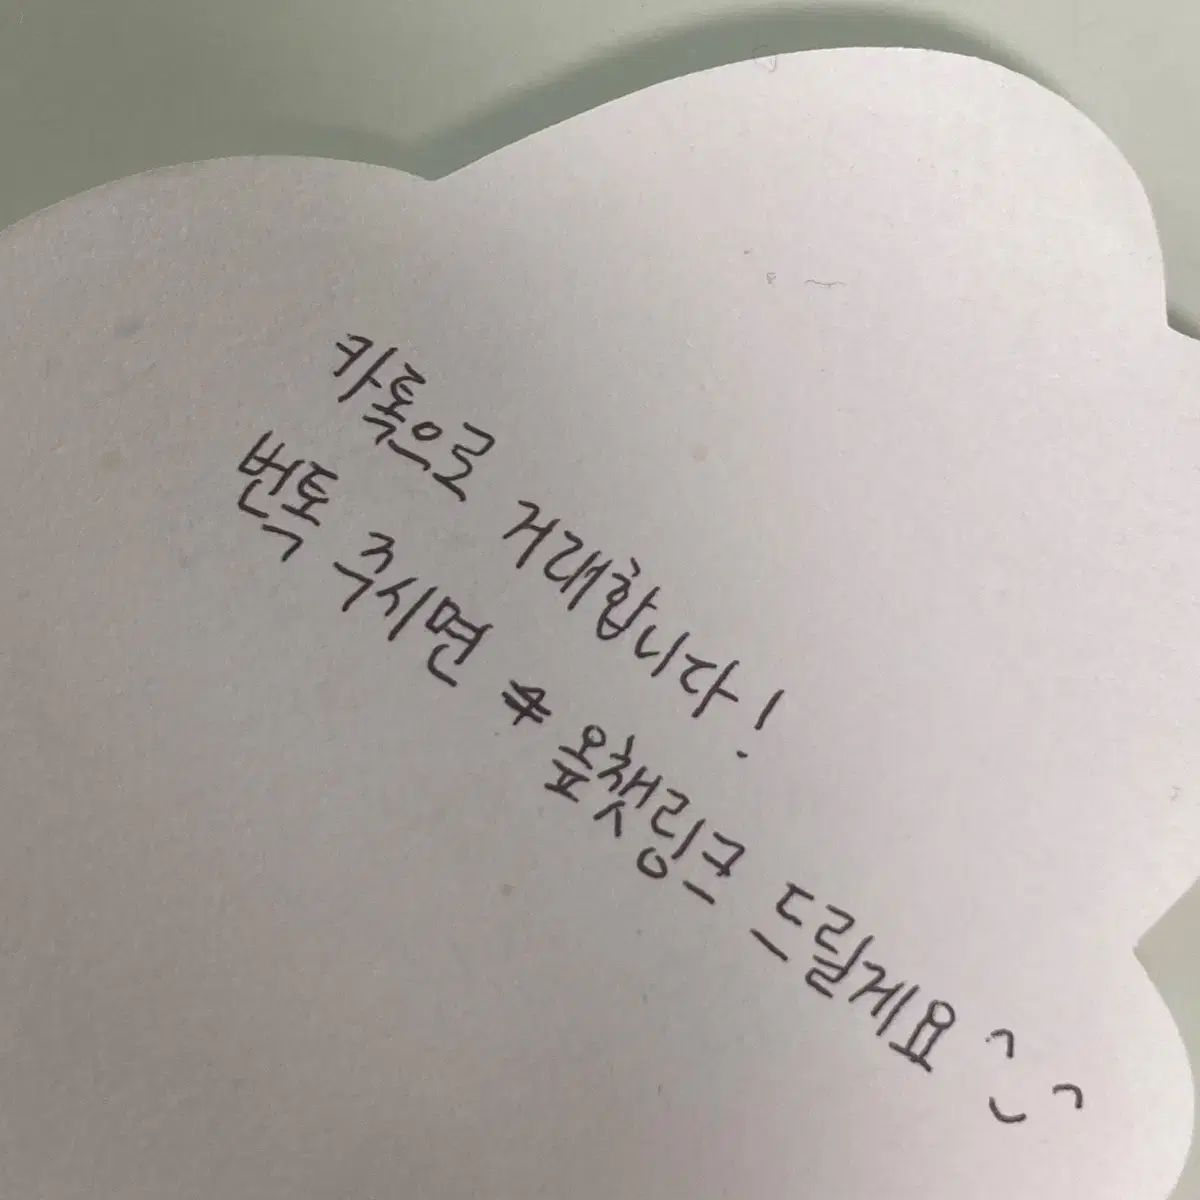 카톡으로 거래합니다!
번톡 주시면 옾챗링크 드릴게요